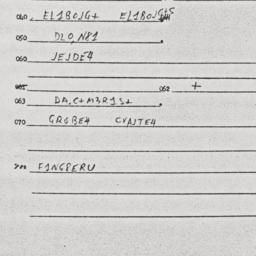 040. EL1BOJG+ EL1BOJG+S
050 DLO,N81
060 JEJDE4
062 +
063 DA,C+M3R1S+
070 GROBE4 CVAJTE4
F1NG8ERU